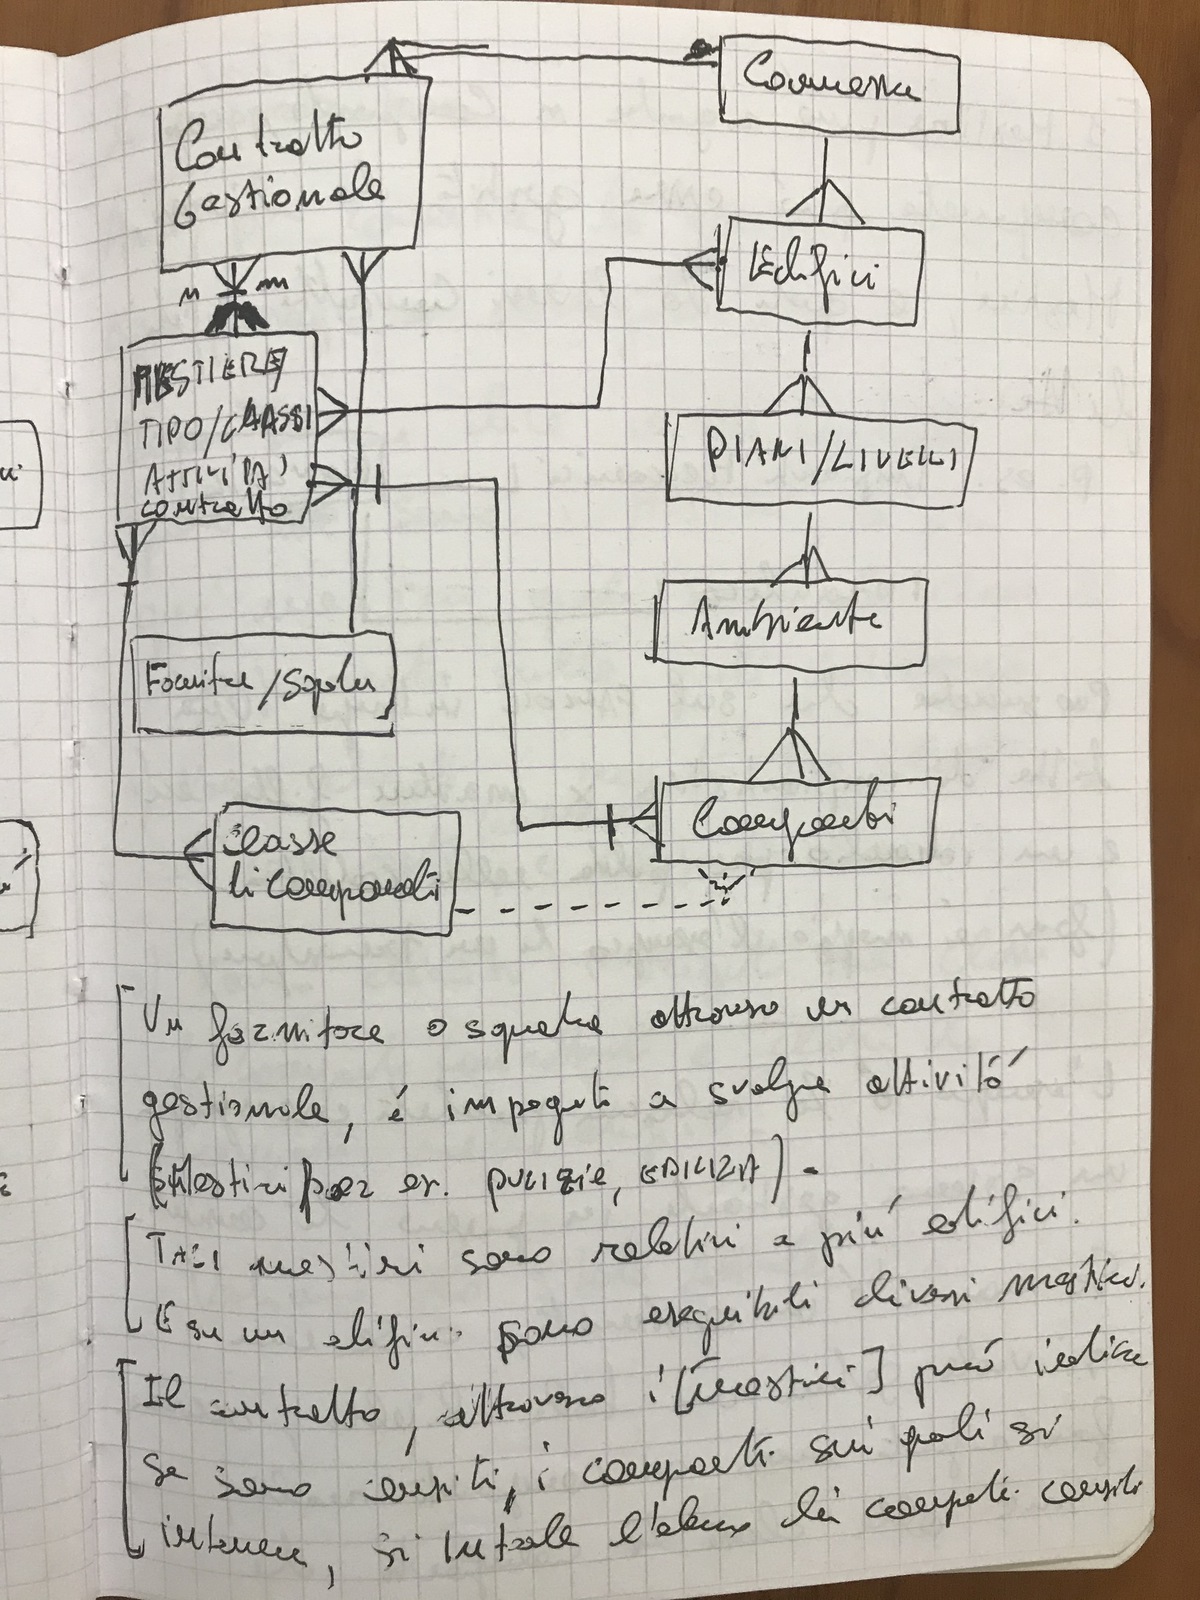 Commessa
Contratto
Gestionale
Edifici
n m
MESTIERE/
TIPO/CLASSI
ATTIVITA'
contratto
PIANI/LIVELLI
Ambiente
Fornitore/Squadra
Componenti
Classe
di componenti
Un fornitore o squadra attraverso un contratto
gestionale, é impegnato a svolgere attivitá
(mestieri per es. PULIZIE, EDILIZIA).
TALI mestieri sono relativi a piú edifici.
E su un edificio sono eseguibili diversi mestieri.
Il contratto, attraverso i [mestieri] può indicare
se sono censiti, i componenti sui quali si
interviene, si intende l'elenco dei componenti censiti